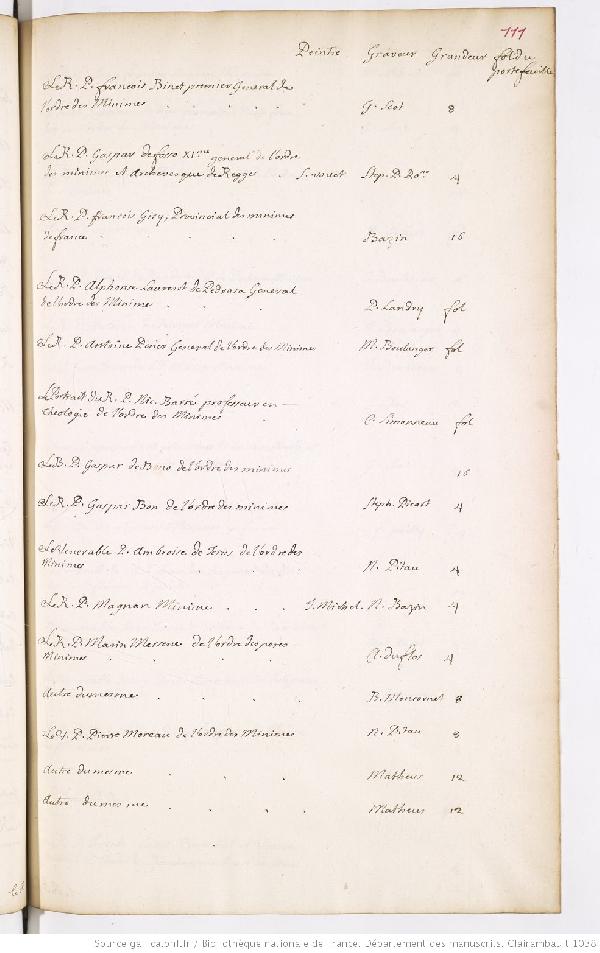 111
Peintre Graveur Grandeur fol du
portefeuille
Le R. P. francois Binet premier General de
l'ordre des Minimes G. Scot 8
Le R. P. Gaspar de fosso XI.me general de l'ordre
des minimes et Archevesque de Regge S. vouet Step. D. 4
Le R. P. francois Giry, Provincial des minimes
de france Bazin 16
Le R. P. Alphonse Laurent de Pedrasa General
de l'ordre des Minime P. Landry fol
Le R. P. Antoine Perier General de l'ordre des Minimes M. Boulanger fol
Le Portrait du R. P. Nic. Barré professeur en
theologie de l'ordre des Minimes C. Simonneau fol
Le B. P. Gaspar de Bono de l'ordre des minimes 16
Le R. P. Gaspar Bon de l'ordre des minimes Steph. Picart 4
Le Venerable P. Ambroise de Jesus de l'ordre des
Minimes N. Pitau 4
Le R. P. Magnan Minime J. Michel. N. Bazin 4
Le R. P. Marin Mersene de l'ordre des peres
Minimes C. duflos 4
Autre du mesme B. Moncornet 8
Le V. P. Pierre Moreau de l'ordre des Minimes N. Pitau 8
Autre du mesme Matheus 12
Autre du mesme Matheus 12
Source gallica.bnf.fr / Bibliothèque nationale de France. Département des manuscrits. Clairambault 1038